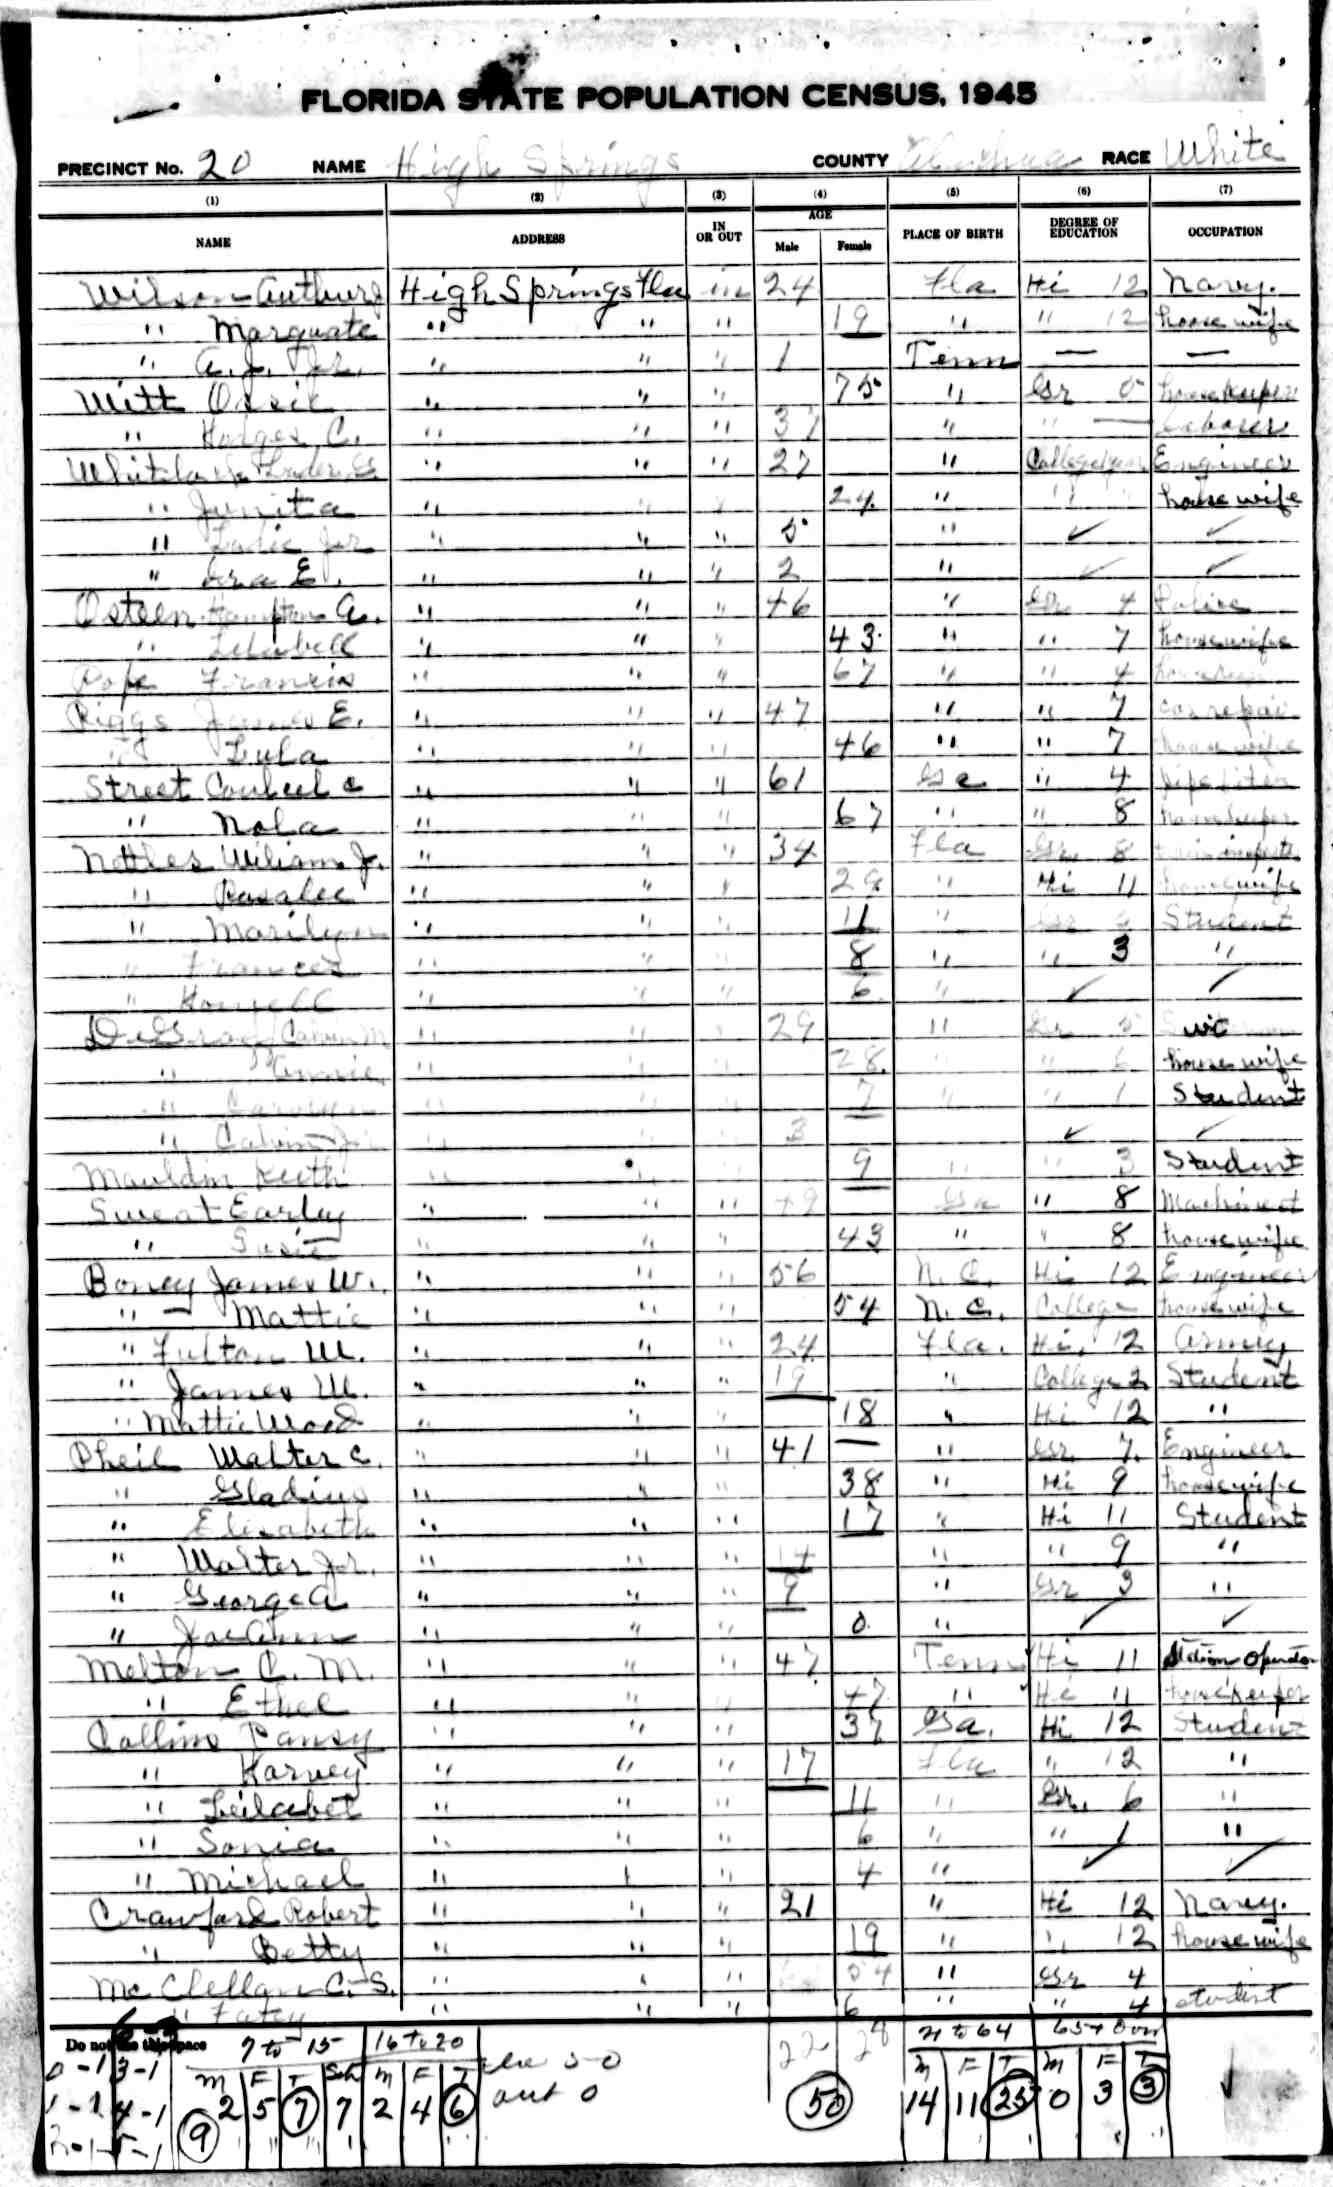 FLORIDA STATE POPULATION CENSUS, 1945
PRECINCT No. 20 NAME High Springs COUNTY Alachua RACE White
(1) (2) (3) (4) (5) (6) (7)
NAME ADDRESS IN OR OUT AGE Male Female PLACE OF BIRTH DEGREE OF EDUCATION OCCUPATION
Wilson Authur J High Springs Fla in 24 Fla Hi 12 Navy.
" Marguate " " " 19 " " 12 house wife
" A. J. Jr. " " " 1 Tenn — —
Witt Ossie " " " 75 " Gr 5 housekeeper
" Hodges C. " " " 37 " " — Laborer
" " " 27 " College Engineer
" Junita " " " 24 " " " house wife
" Jr " " " 5 " ✓ ✓
" Ira E. " " " 2 " ✓ ✓
Osteen Hampton A. " " " 46 " Gr 4 Police
" Lulabell " " " 43 " " 7 housewife
Pope Francis " " " 67 " " 4
Riggs James E. " " " 47 " " 7 car repair
" Lula " " " 46 " " 7 house wife
Street c " " " 61 Ga " 4
" Nola " " " 67 " " 8 housekeeper
Nettles Wiliam J. " " " 34 Fla Gr 8
" Rosalee " " " 29 " Hi 11 housewife
" Marilyn " " " 11 " Gr Student
" Frances " " " 8 " " 3 "
" " " " 6 " ✓ ✓
" " " 29 " Gr 5
" Annie " " " 28 " " 6 house wife
" " " " 7 " " 1 Student
" Calvin Jr " " " 3 ✓ ✓
Mauldin Keith " " " 9 " " 3 Student
Sweat Earley " " " 49 Ga " 8 Machinest
" Susie " " " 43 " " 8 house wife
Boney James W. " " " 56 N. C. Hi 12 Engineer
" Mattie " " " 54 N. C. College house wife
" Fulton W. " " " 24 Fla. Hi. 12 Army
" James W. " " " 19 " College 2 Student
" Mattie Wood " " " 18 " Hi 12 "
Pheil Walter C. " " " 41 — " Gr 7. Engineer
" Gladius " " " 38 " Hi 9 housewife
" Elizabeth " " " 17 " Hi 11 Student
" Walter Jr. " " " 14 " " 9 "
" George A " " " 9 " Gr 3 "
" Joe Ann " " " 0 " ✓ ✓
Melton C. M. " " " 47 Tenn Hi 11 Station Operator
" Ethel " " " 47 " Hi 11 housekeeper
Collins Pansy " " " 37 Ga. Hi 12 Student
" Harvey " " " 17 Fla " 12 "
" Leilabet " " " 11 " Gr. 6 "
" Sonia " " " 6 " " 1 "
" Michael " " " 4 " ✓ ✓
Crawford Robert " " " 21 " Hi 12 Navy.
" Betty " " " 19 " " 12 house wife
Mc Clellan C. S. " " " 54 " Gr 4
" " " " 6 " " 4 student
Do not use this space 7 to 15 16 to 20 22 28 21 to 64 65 + Over
0 - 1 3 - 1 M F T Sch M F T 50 M F T M F T
1 - 2 4 - 1 9 2 5 7 7 2 4 6 out 0 50 14 11 25 0 3 3
2 - 1 5 - 1